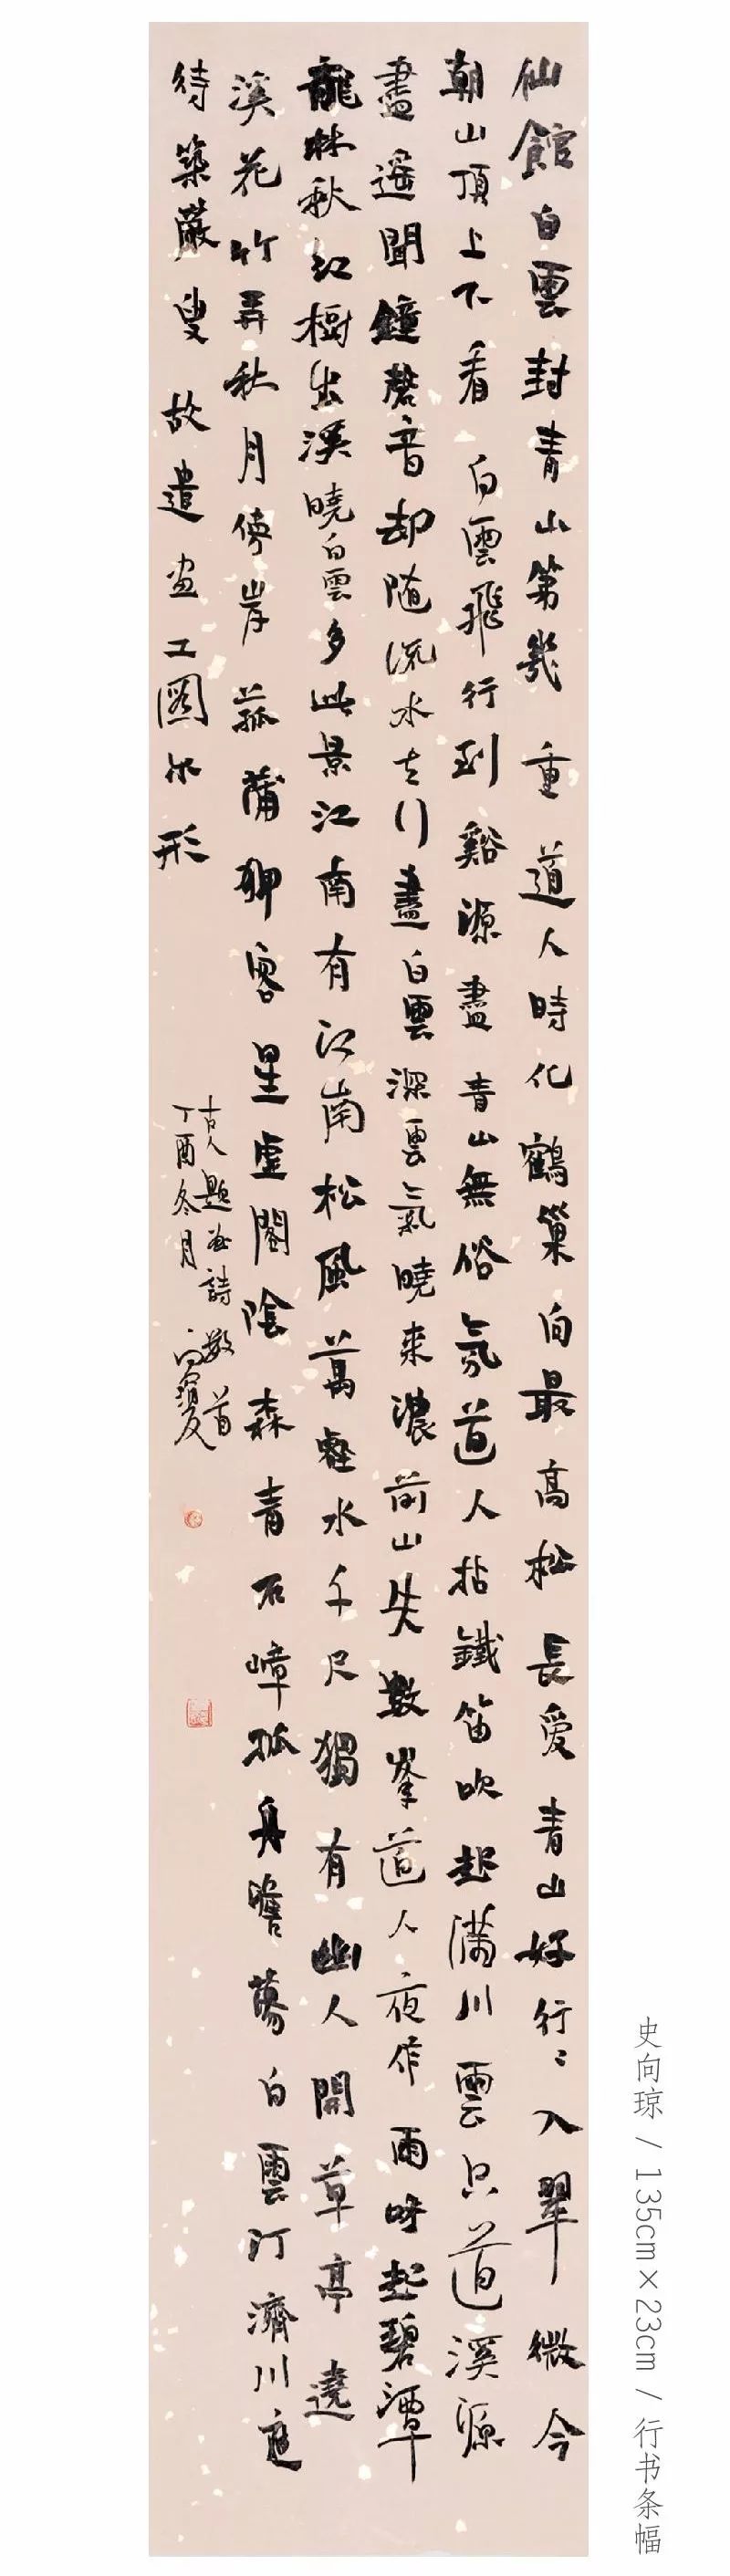 仙館白雲封青山第幾重道人時化鶴巢向最高松長愛青山好行〻入翠微今
朝山頂上下看白雲飛行到谿源盡青山無俗氛道人拈鐵笛吹起滿川雲只道溪源
盡遥聞鐘磬音却随流水去行盡白雲深雲氣曉来濃前山失數峯道人夜作雨呼起碧潭
龍楙秋紅樹出溪曉白雲多此景江南有江南松風萬壑水千尺獨有幽人開草亭遶
溪花竹弄秋月傍岸菰蒲聊客星虚閣陰森青石嶂孤舟澹蕩白雲汀濟川
待築巖叟故遣画工圖尔形
古人題画詩數首
丁酉冬月向瓊
史向琼 / 135cm×23cm / 行书条幅